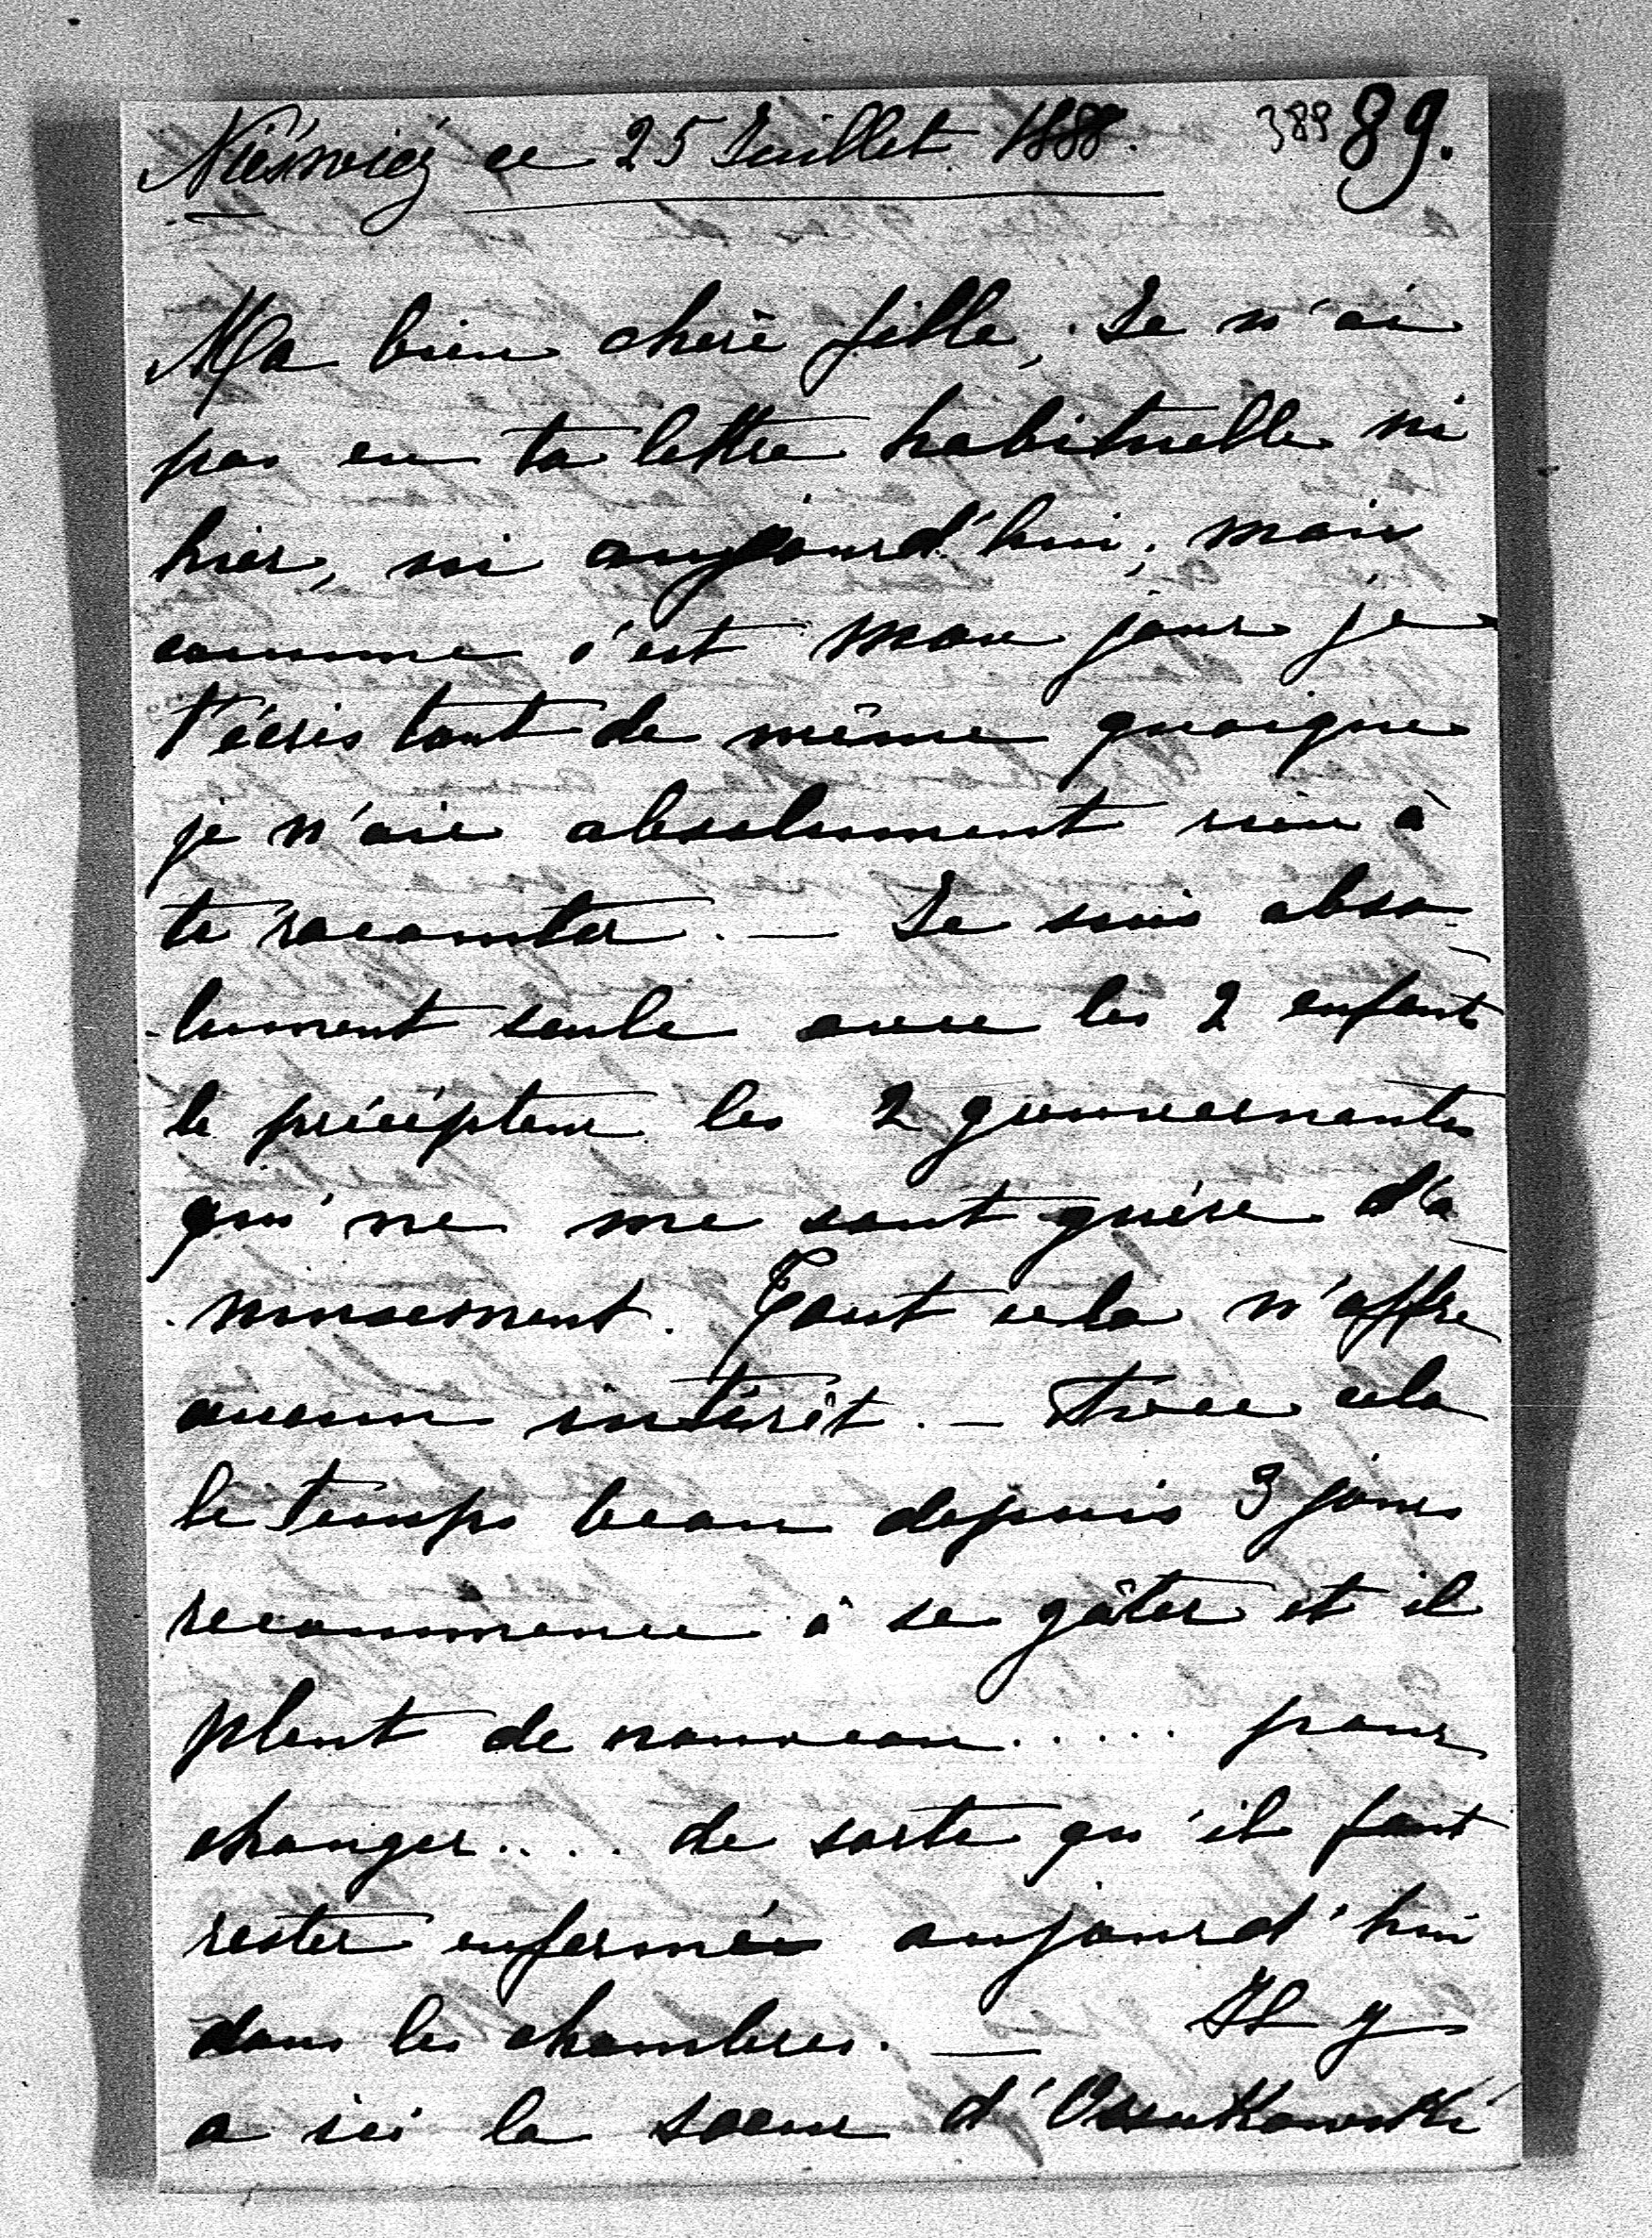 Nieśwież ce 25 Juillet 1888. 388 89.
Ma bien chère fille, Je n'ai
pas eu ta lettre habituelle ni
hier, ni aujourd'hui; mais
comme c'est mon jour je
t'écris tout de même quoique
je n'aie absolument rien à
te racconter. — Je suis abso-
-lument seule avec les 2 enfants
le précépteur les 2 gouvernantes
qui ne me sont guère d'a-
-musement. Tout cela n'offre
aucun intérêt. — Avec cela
le temps beau depuis 3 jours
recommence à se gâter et il
pleut de nouveau..... pour
changer.... de sorte qu'il faut
rester enfermés aujourd'hui
dans les chambres. — Il y
a ici la soeur d'Ossukowski